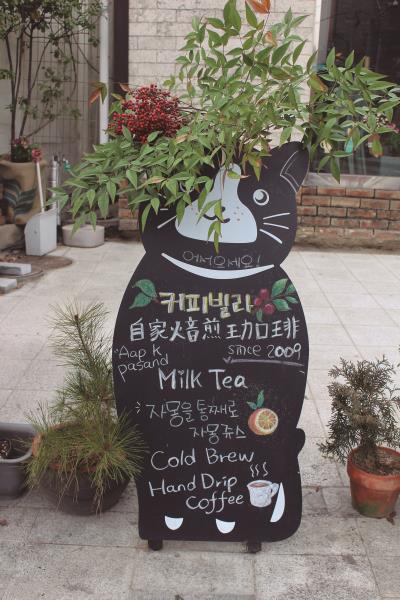 어서오세요!
커피빌라
自家焙煎 珈琲
Aap k
pasand
since 2009
Milk Tea
자몽을통째로
자몽쥬스
Cold Brew
Hand Drip
Coffee